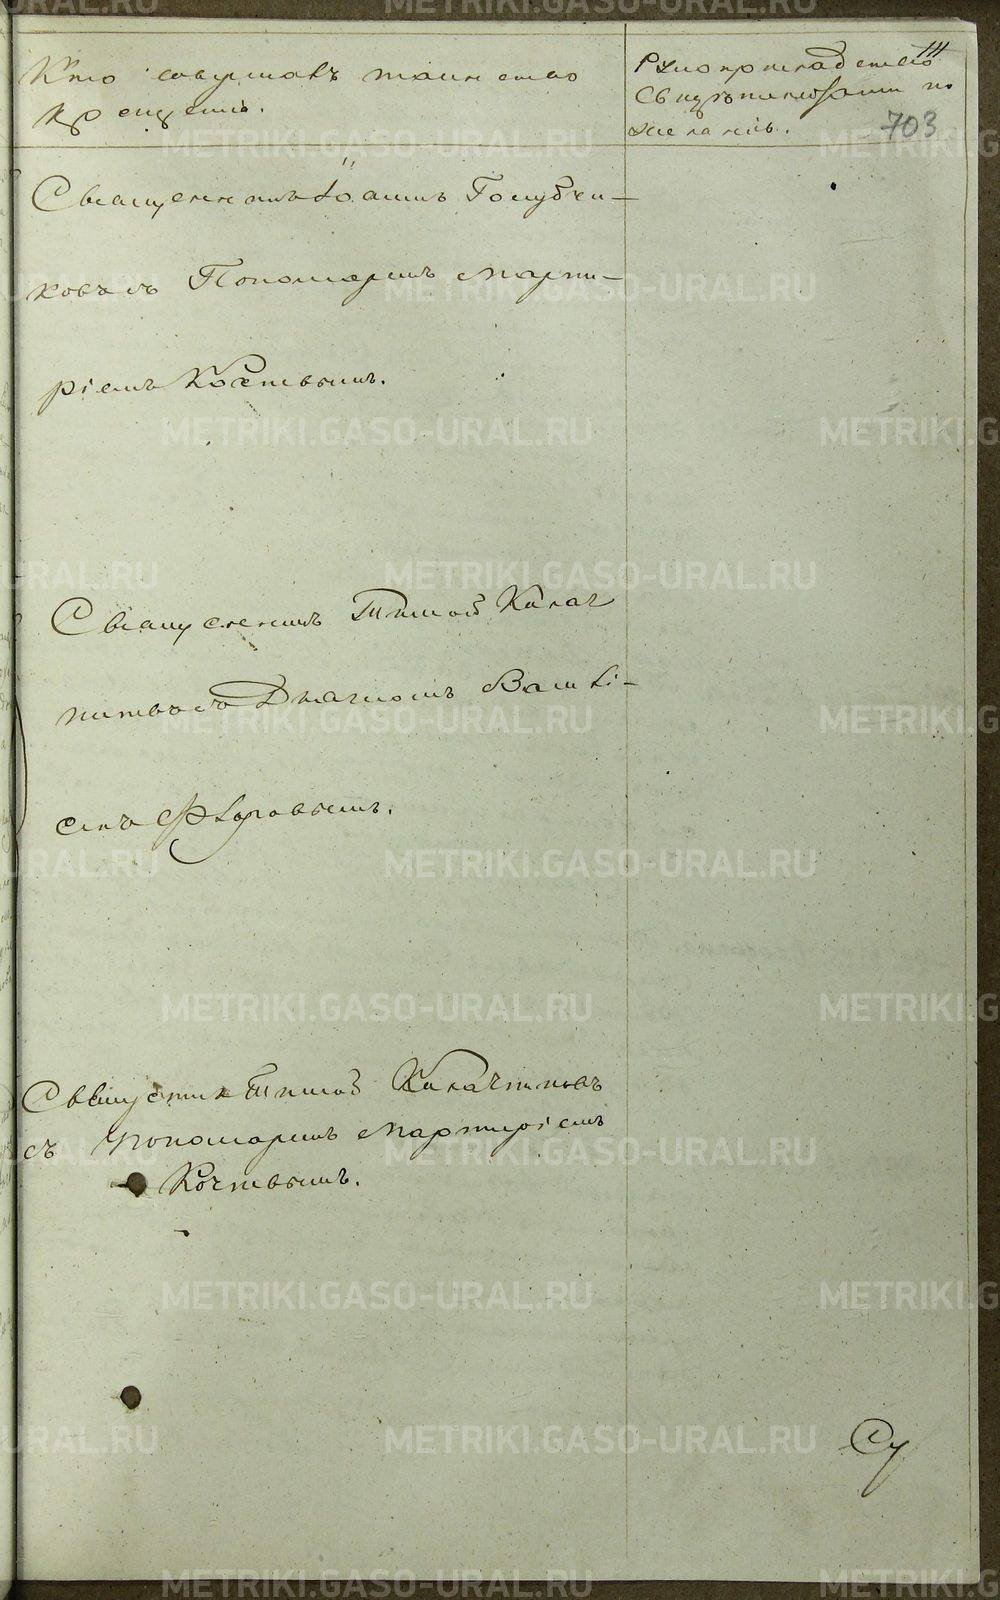 Кто совершалъ таинство
крещенiя.
Рукоприкладство
Свидѣтелей записи по
желанiю.
703
Священникъ Iоаннъ Голубчи-
ковъ съ Пономаремъ Марти-
рiемъ Кочтвымъ.
Священникъ Тимоѳ Калач
никовъ съ Дьякономъ Васи
ѳеодоровымъ.
Священникъ Тимоѳ Калачниковъ
съ пономаремъ Мартирiемъ
Кочтвымъ.
Су
METRIKI.GASO-URAL.RU